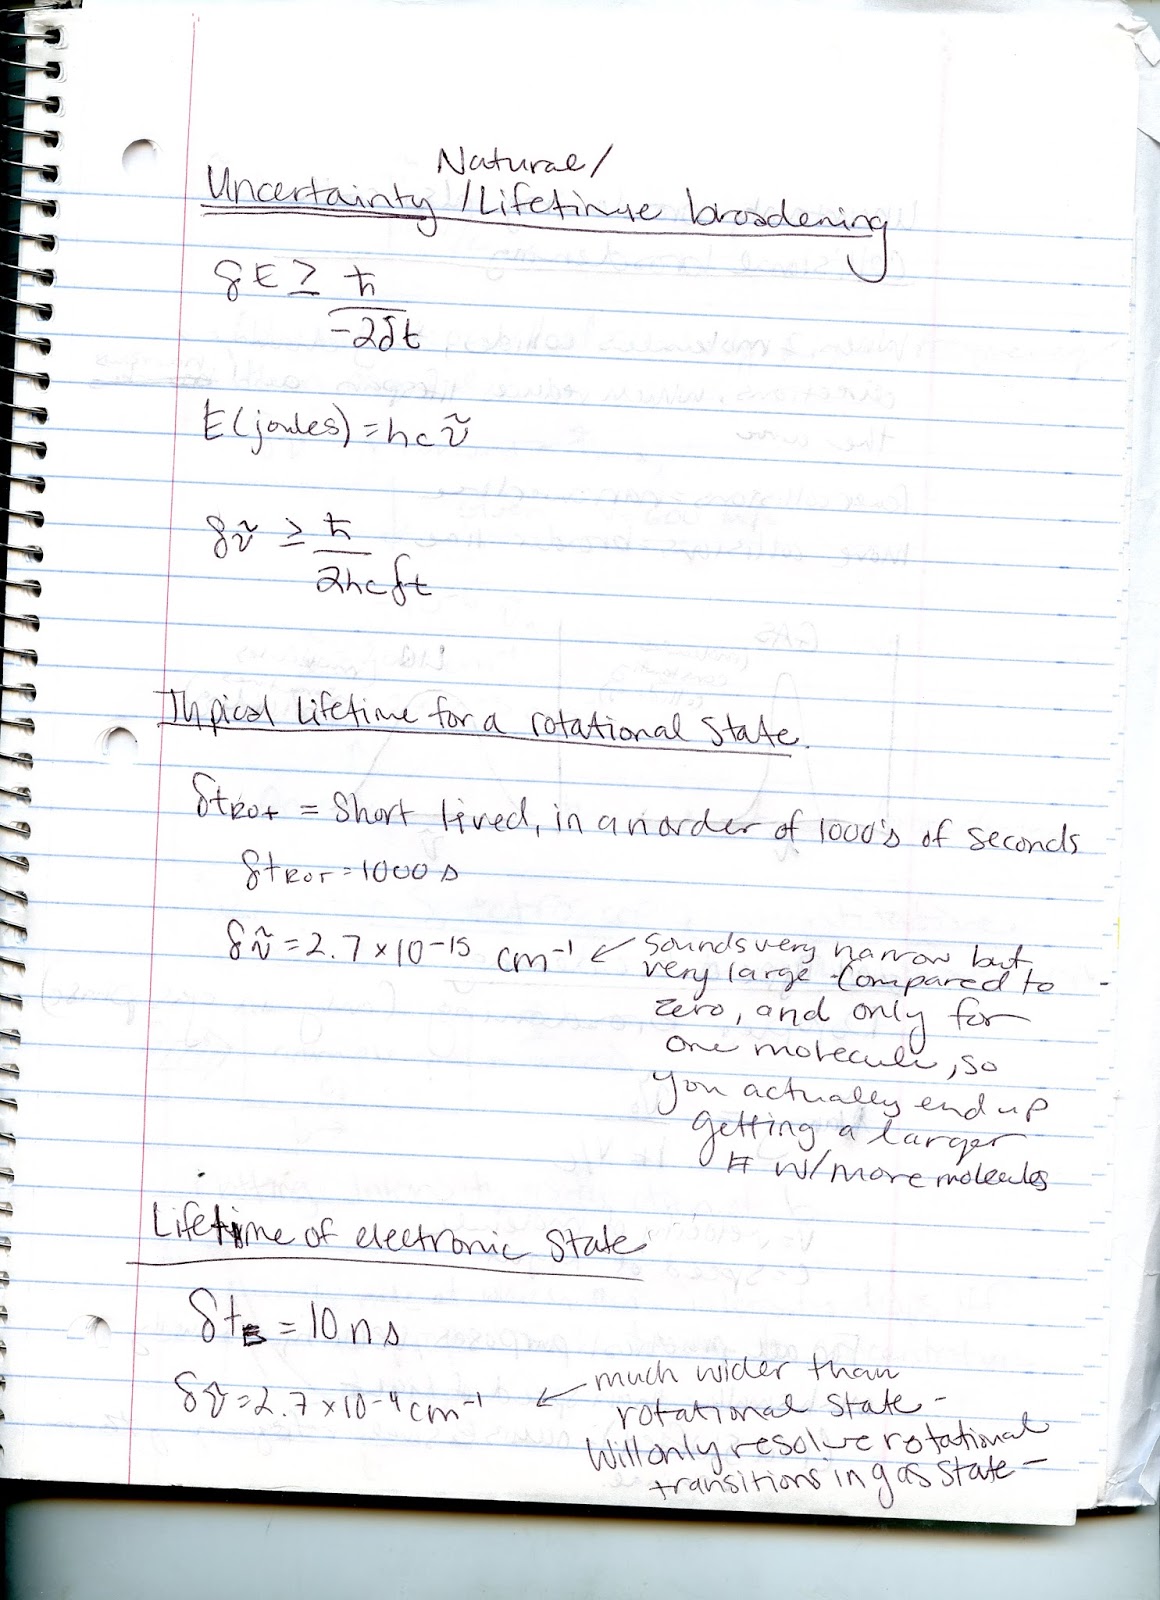 Natural/
Uncertainty /Lifetime broadening
δE ≥ ħ
-2δt
E(joules) = hcν̃
δν̃ ≥ ħ
2hcδt
Typical Lifetime for a rotational state.
δtRot = Short lived, in an order of 1000's of seconds
δtROT = 1000 s
δν̃ = 2.7 x 10-15 cm-1 ← Sounds very narrow but
very large compared to
zero, and only for
one molecule, so
you actually end up
getting a larger
# w/more molecules
Lifetime of electronic State
δtE = 10 ns
δν̃ = 2.7 x 10-4 cm-1 ← much wider than
rotational state -
Will only resolve rotational
transitions in gas state -